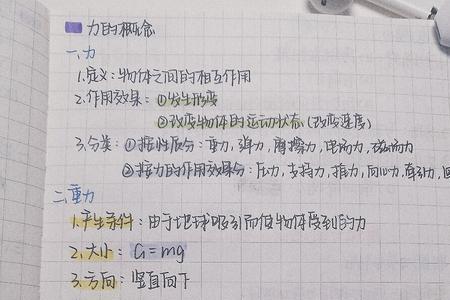 力的概念
一、力
1.定义：物体之间的相互作用
2.作用效果：①发生形变
②改变物体的运动状态(改变速度)
3.分类：①按性质分：重力,弹力,摩擦力,电场力,磁场力
②按力的作用效果分：压力,支持力,推力,向心力,牵引力,回
二、重力
1.产生条件：由于地球吸引而使物体受到的力
2.大小：G=mg
3.方向：竖直向下